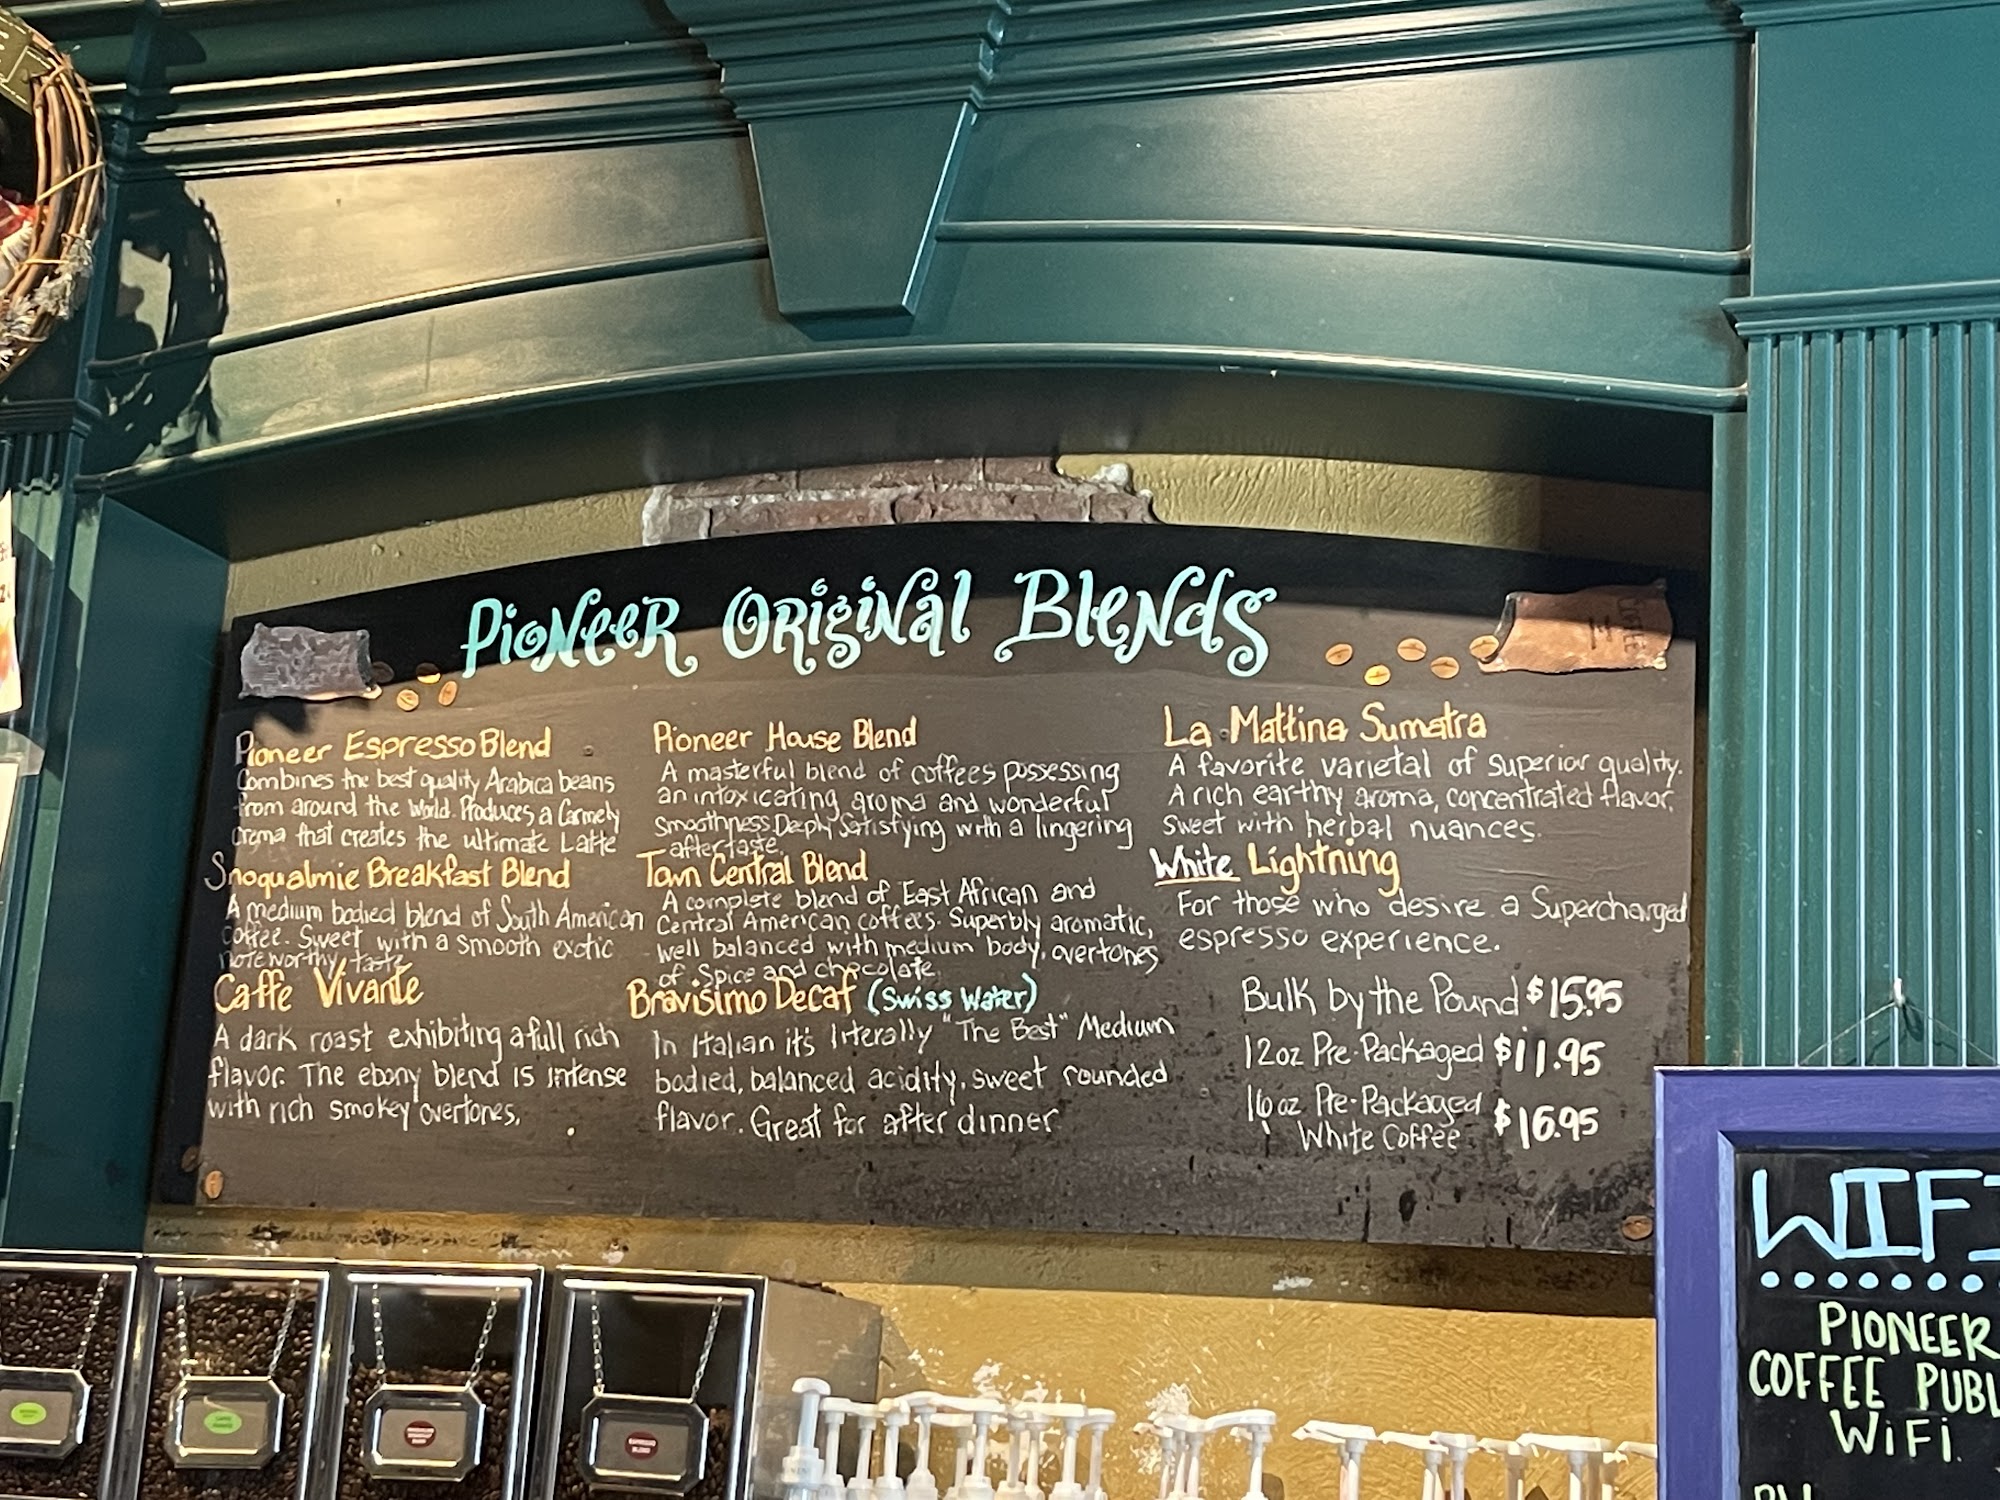 Pioneer Original Blends
Pioneer Espresso Blend
Combines the best quality Arabica beans
from around the World. Produces a Carmely
crema that creates the ultimate Latte
Snoqualmie Breakfast Blend
A medium bodied blend of South American
coffee. Sweet with a smooth exotic
noteworthy taste
Caffe Vivante
A dark roast exhibiting a full rich
flavor. The ebony blend is intense
with rich smokey overtones.
Pioneer House Blend
A masterful blend of coffees possessing
an intoxicating aroma and wonderful
Smoothness. Deeply Satisfying with a lingering
aftertaste.
Town Central Blend
A complete blend of East African and
Central American coffees. Superbly aromatic,
well balanced with medium body, overtones
of Spice and chocolate.
Bravisimo Decaf (Swiss Water)
In Italian it's literally "The Best" Medium
bodied, balanced acidity, sweet rounded
flavor. Great for after dinner
La Mattina Sumatra
A favorite varietal of superior quality.
A rich earthy aroma, concentrated flavor,
sweet with herbal nuances.
White Lightning
For those who desire a Supercharged
espresso experience.
Bulk by the Pound $15.95
12oz Pre-Packaged $11.95
16oz Pre-Packaged
White Coffee $16.95
WIFI
PIONEER
COFFEE PUBL
WiFi.
ESPRESSO
BLEND